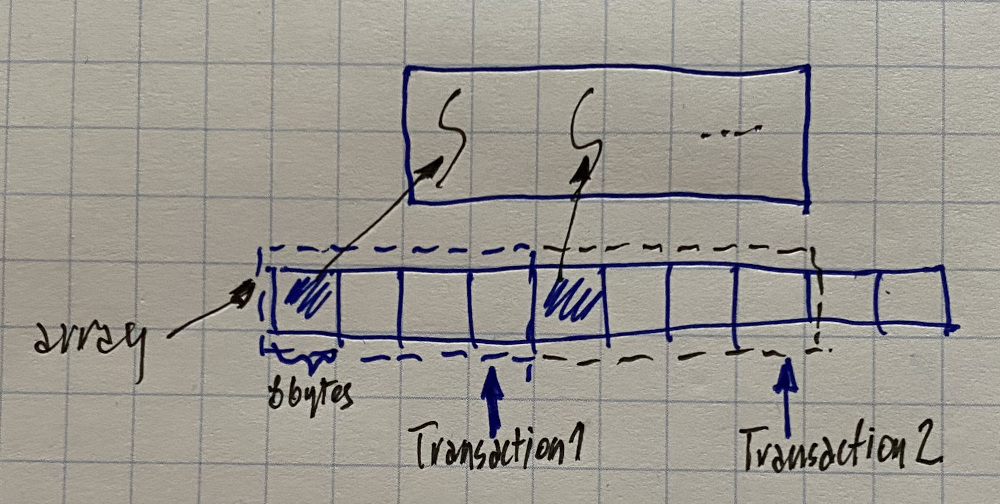 array
8bytes
Transaction1
Transaction 2